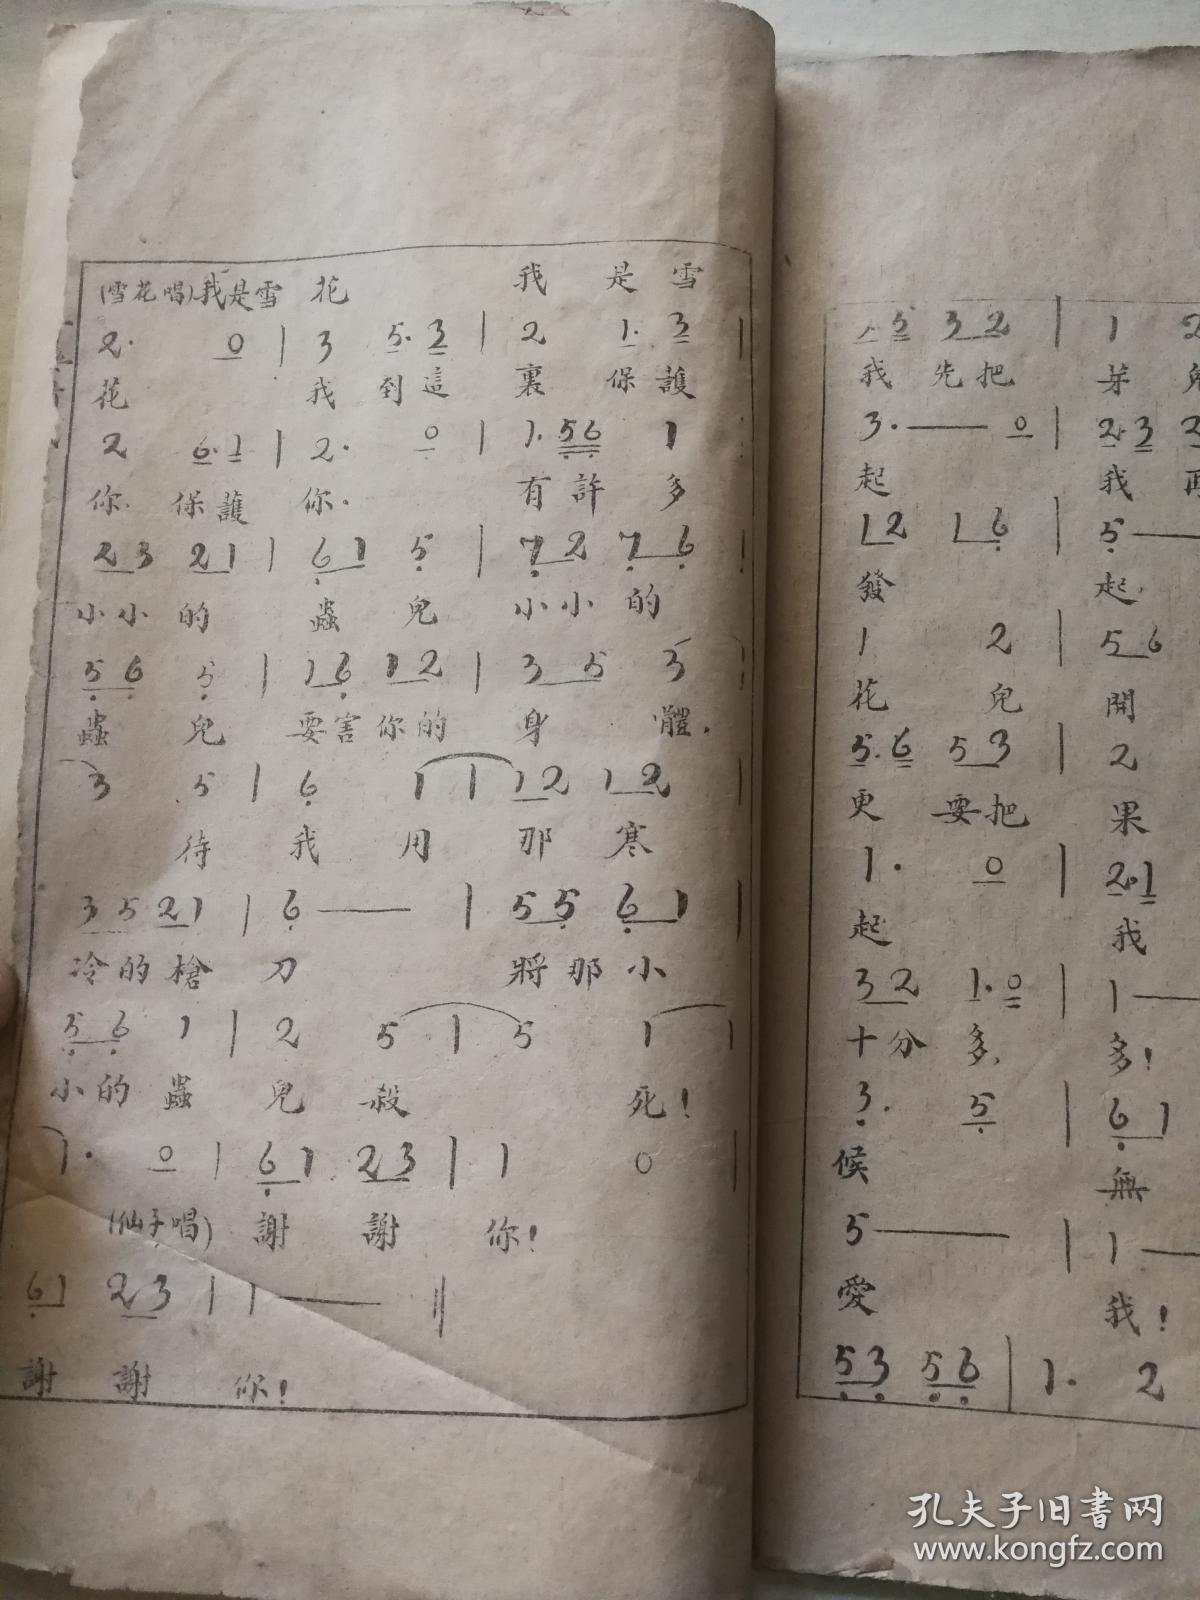 (雪花唱)我是雪 花 我 是 雪
2. 0 | 3 5.3 | 2 1.3 |
花 我 到 這 裏 保 護
2 6.1 | 2. 0 | 1.56 1
你. 保 護 你. 有 許 多
23 21 | 61 5 | 72 76
小 小 的 蟲 兒 小 小 的
56 5 | 16 12 | 35 3
蟲 兒 要 害 你 的 身 體.
3 5 | 6 1 | 12 12 |
待 我 用 那 寒
35 21 | 6 — | 55 61 |
冷 的 槍 刀 將 那 小
56 1 | 2 5 | 5 1 |
小 的 蟲 兒 殺 死!
1. 0 | 61 23 | 1 0 |
(仙子唱) 謝 謝 你!
61 23 | 1 — ‖
謝 謝 你!
5 32 | 1 2
我 先 把 芽
3. — 0 | 2.3 2
起 我 再
12 16 | 5 —
發 起.
1 2 | 56
花 兒 開
5.6 53 | 2
更 要 把 果
1. 0 | 2.1
起 我
32 1.0 | 1 —
十 分 多. 多!
3. 5 | 61
候 無
5 — | 1 —
愛 我!
53 56 | 1. 2
孔夫子旧书网
www.kongfz.com